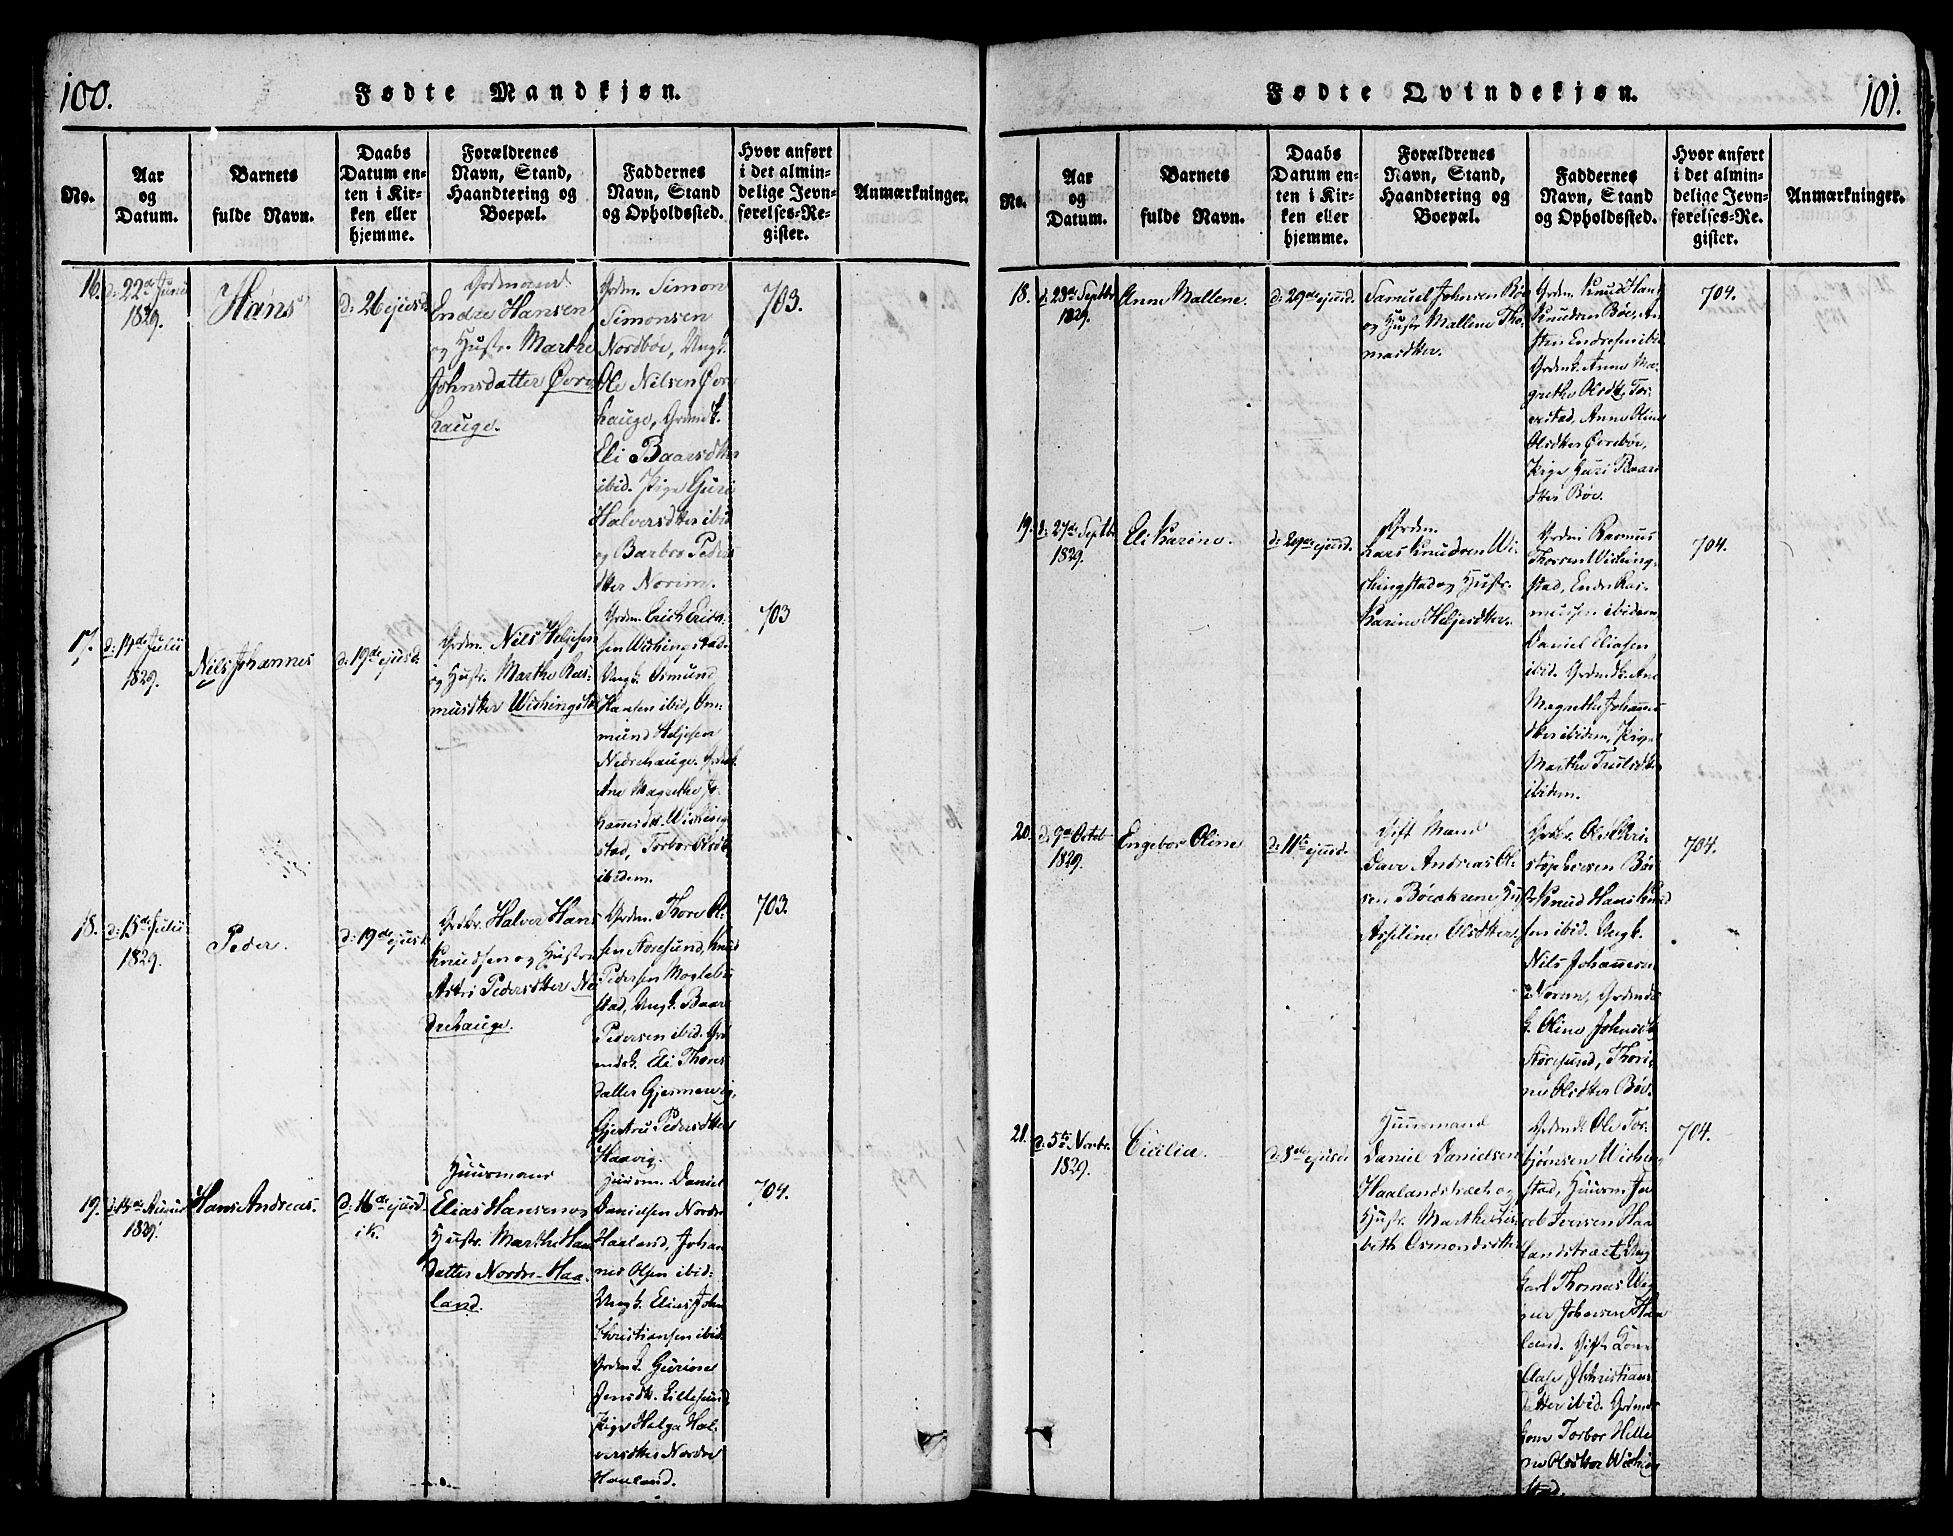 100.
Fødte Mandkjøn.
No.
Aar
og
Datum.
Barnets
fulde Navn.
Daabs
Datum en-
ten i Kir-
ken eller
hjemme.
Forældrenes
Navn, Stand,
Haandtering og
Boepæl.
Faddernes
Navn, Stand
og Opholdssted.
Hvor anført
i det almin-
delige Jevn-
førelses-Re-
gister.
Anmærkninger.
16.
d: 22de Juni
1829.
Hans
d: 26 ejusd.
Grdmand
Endre Hansen
og Hustr. Marthe
Johnsdatter Øvre
hauge.
Grdm. Simon
Simonsen
Nordbøe, Ungk.
Ole Nilsen Øvre
hauge, Grdmk.
Eli Baarsdtter
ibid. Pige Guri
Halversdtter ibid
og Barbro Peders
dtter Norim.
703.
17.
d: 14de Julii
1829.
Nils Johannes
d: 19de ejusd.
Grdm. Nils Heljesen
og Hustr. Marthe Ras-
musdtter Wishingstad
Grdm. Erich Erich
sen Wishingstad.
Ungk. Osmund
Hansen ibid, Om-
mund Heljesen
Nedrehauge.
Ane Magrethe Jo-
hannesdtr. Wishing
stad, Torbor Olsdtr
ibidem.
703
18.
d: 15de Julii
1829.
Peder.
d: 19de ejusd.
Grdbr. Halver Hans
Knudsen og Hustru
Astri Pedersdtter Ne-
drehauge.
Grdm. Thore Ol-
sen Storesund, Knud
Pedersen Mogleby
stad, Ungk. Baar
Pedersen ibid. Gr
mdsk. Eli Thores
datter Gjesmervig,
Gjertru Pedersdtter
Haavig.
703.
19.
1829.
Hans Andreas.
d: 16de ejusd.
ik.
Huusmand
Elias Hansen og
Hustr. Marthe Han
datter Nordre-Haa-
land.
Huusm. Daniel
Danielsen Nordre
Haaland, Johan
nes Olsen ibid:
Ungk. Elias John
Christiansen ibid.
Grdmk. Gurine
Jensdtr. Lillesund,
Pige Helga Hal-
versdtter Nordre
Haaland.
704.
101.
Fødte Qvindekjøn.
No.
Aar
og
Datum.
Barnets
fulde Navn.
Daabs
Datum en-
ten i Kir-
ken eller
hjemme.
Forældrenes
Navn, Stand,
Haandtering og
Boepæl.
Faddernes
Navn, Stand
og Opholdssted.
Hvor anført
i det almin-
delige Jevn-
førelses-Re-
gister.
Anmærkninger.
18.
d: 23de Septbr
1829.
Anne Mallene.
d: 29de ejusd.
Samuel Johnsen Bøe
og Hustr. Mallene Tho-
masdtter.
Grdm. Knud Hans
Knudsen Bøe,
Endresen ibid
Grdmk. Anne Ma-
grethe Olsdtr. Tor-
vestad, Anne Oline
Olsdtter Øvrebøe,
Pige Guri Baars
dtter Bøe.
704.
19.
d: 27de Septbr
1829.
Eli Karine.
d: 29de ejusd.
Grdm.
Lars Knudsen Wi-
shingstad og Hustr.
Karine Heljesdtter.
Grdm. Rasmus
Thorsen Wishing-
stad, Endre Ras-
mussen ibidem
Daniel Eliasen
ibid. Grdmdk. Ane
Magrethe Johannes
dtter ibidem, Pige
Marthe Trulsdtter
ibidem.
704.
20.
d: 9de Octob
1829.
Engebor Oline
d: 11te ejusd.
Gift Mand
Andreas Ol-
sen Bøe
Asseline Olsdtter.
Grdbr. Ole Chri-
stophersen Bøe
Knud Hans Knud
sen ibid. Ungk.
Nils Johannesen
Norum, Grdmds
k. Oline Johnsdtr
Storesund, Thori-
ne Olsdtter Bøe.
704.
21.
d: 5te Novbr.
1829.
Cicilia.
d: 8de ejusd
Huusmand
Daniel Danielsen
Haalandstræet og
Hustr. Marthe Lis-
beth Osmondsdtter
Grdmd: Ole Tor-
bjørnsen Wishing
stad, Huusm. Ja-
cob Iversen Haa
landstræet, Ung
karl Thomas
Johnsen Haa
land. Gift Kone
Christians
datter ibid. Grdmds
kone Torbor Helle
ne Olsdtter Wishing
stad.
704.